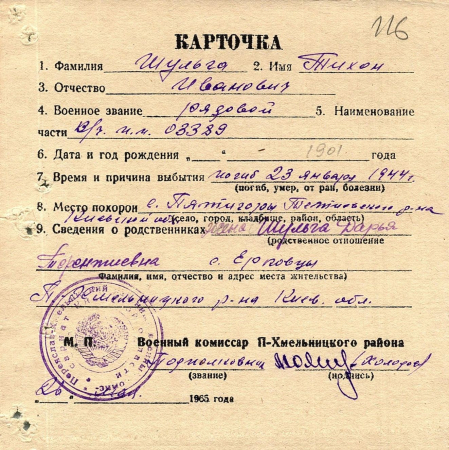 116
КАРТОЧКА
1. Фамилия Шульга 2. Имя Тихон
3. Отчество Иванович
4. Военное звание рядовой 5. Наименование
части В/ч п.п. 03389
6. Дата и год рождения „ “ 1901 года
7. Время и причина выбытия погиб 23 января 1944 г.
(погиб, умер, от ран, болезни)
8. Место похорон с. Пятигоры Тетиевского р-на
Киевской обл.
(село, город, кладбище, район, область)
9. Сведения о родственниках жена Шульга Дарья
(родственное отношение
Терентиевна с. Ерковцы
Фамилия, имя, отчество и адрес места жительства)
П. Хмельницкого р-на Киев. обл.
М. П. Военный комиссар П-Хмельницкого района
Подполковник
(звание) (подпись)
1965 года